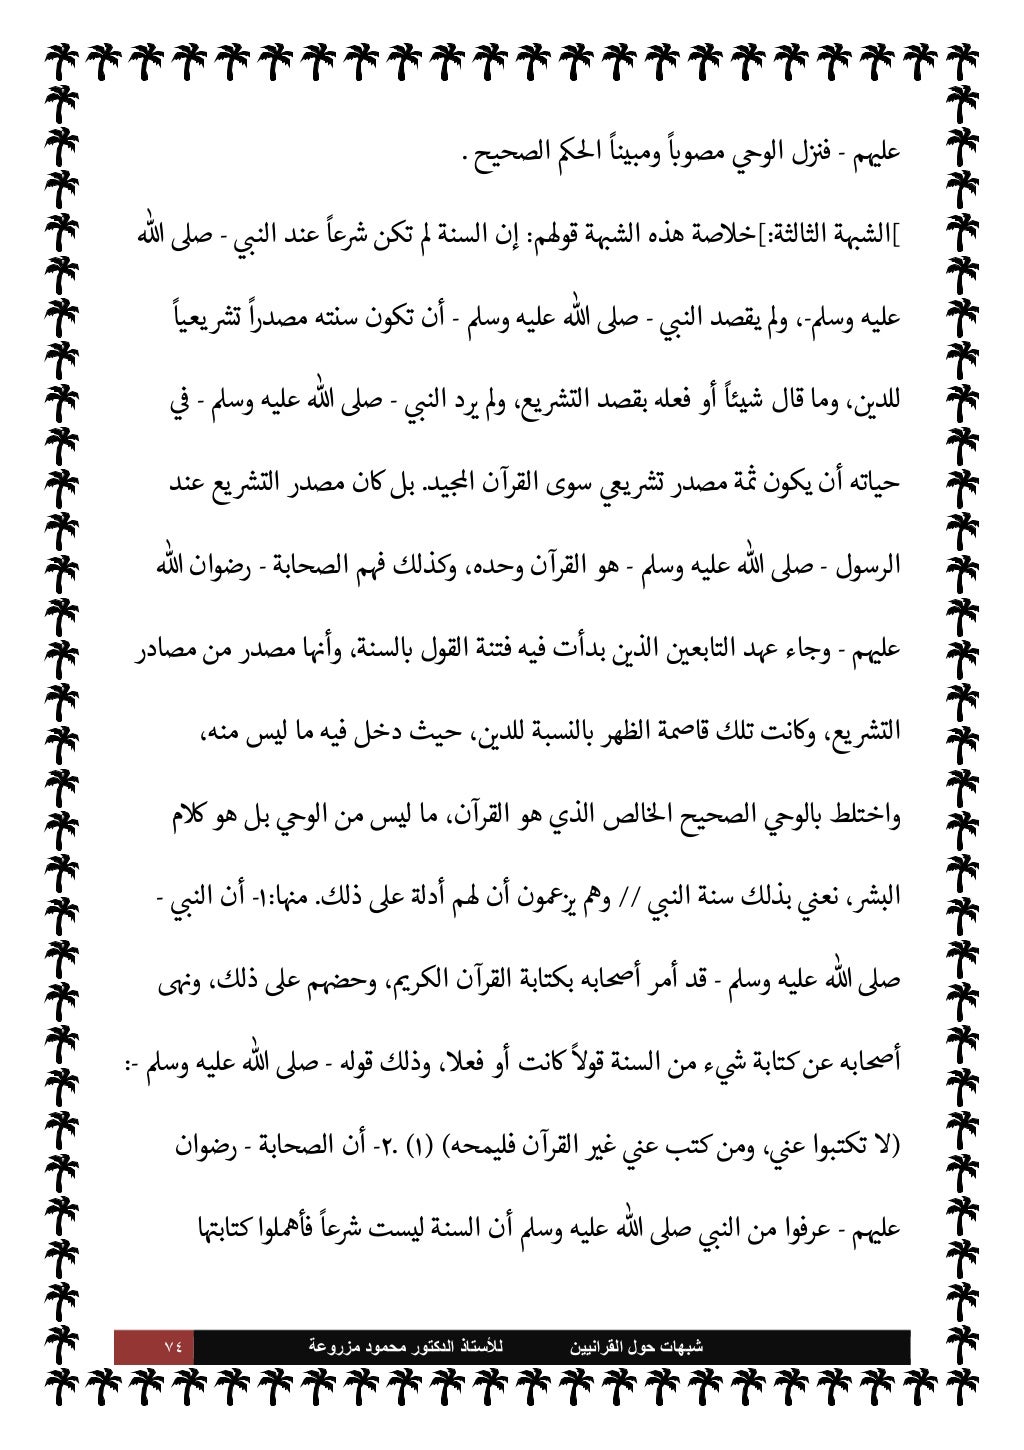 عليهم - فنزل الوحي مصوباً ومبيناً الحكم الصحيح .
]الشبهة الثالثة:]خلاصة هذه الشبهة قولهم: إن السنة لم تكن شرعاً عند النبي - صلى الله
عليه وسلم-، ولم يقصد النبي - صلى الله عليه وسلم - أن تكون سنته مصدراً تشريعياً
للدين، وما قال شيئاً أو فعله بقصد التشريع، ولم يرد النبي - صلى الله عليه وسلم - في
حياته أن يكون ثمة مصدر تشريعي سوى القرآن المجيد. بل كان مصدر التشريع عند
الرسول - صلى الله عليه وسلم - هو القرآن وحده، وكذلك فهم الصحابة - رضوان الله
عليهم - وجاء عهد التابعين الذين بدأت فيه فتنة القول بالسنة، وأنها مصدر من مصادر
التشريع، وكانت تلك قاصمة الظهر بالنسبة للدين، حيث دخل فيه ما ليس منه،
واختلط بالوحي الصحيح الخالص الذي هو القرآن، ما ليس من الوحي بل هو كلام
البشر، نعني بذلك سنة النبي // وهم يزعمون أن لهم أدلة على ذلك. منها:١- أن النبي -
صلى الله عليه وسلم - قد أمر أصحابه بكتابة القرآن الكريم، وحضهم على ذلك، ونهى
أصحابه عن كتابة شيء من السنة قولاً كانت أو فعلا، وذلك قوله - صلى الله عليه وسلم -:
(لا تكتبوا عني، ومن كتب عني غير القرآن فليمحه) (١) .٢- أن الصحابة - رضوان
عليهم - عرفوا من النبي صلى الله عليه وسلم أن السنة ليست شرعاً فأهملوا كتابتها
شبهات حول القرانيين للأستاذ الدكتور محمود مزروعة ٧٤